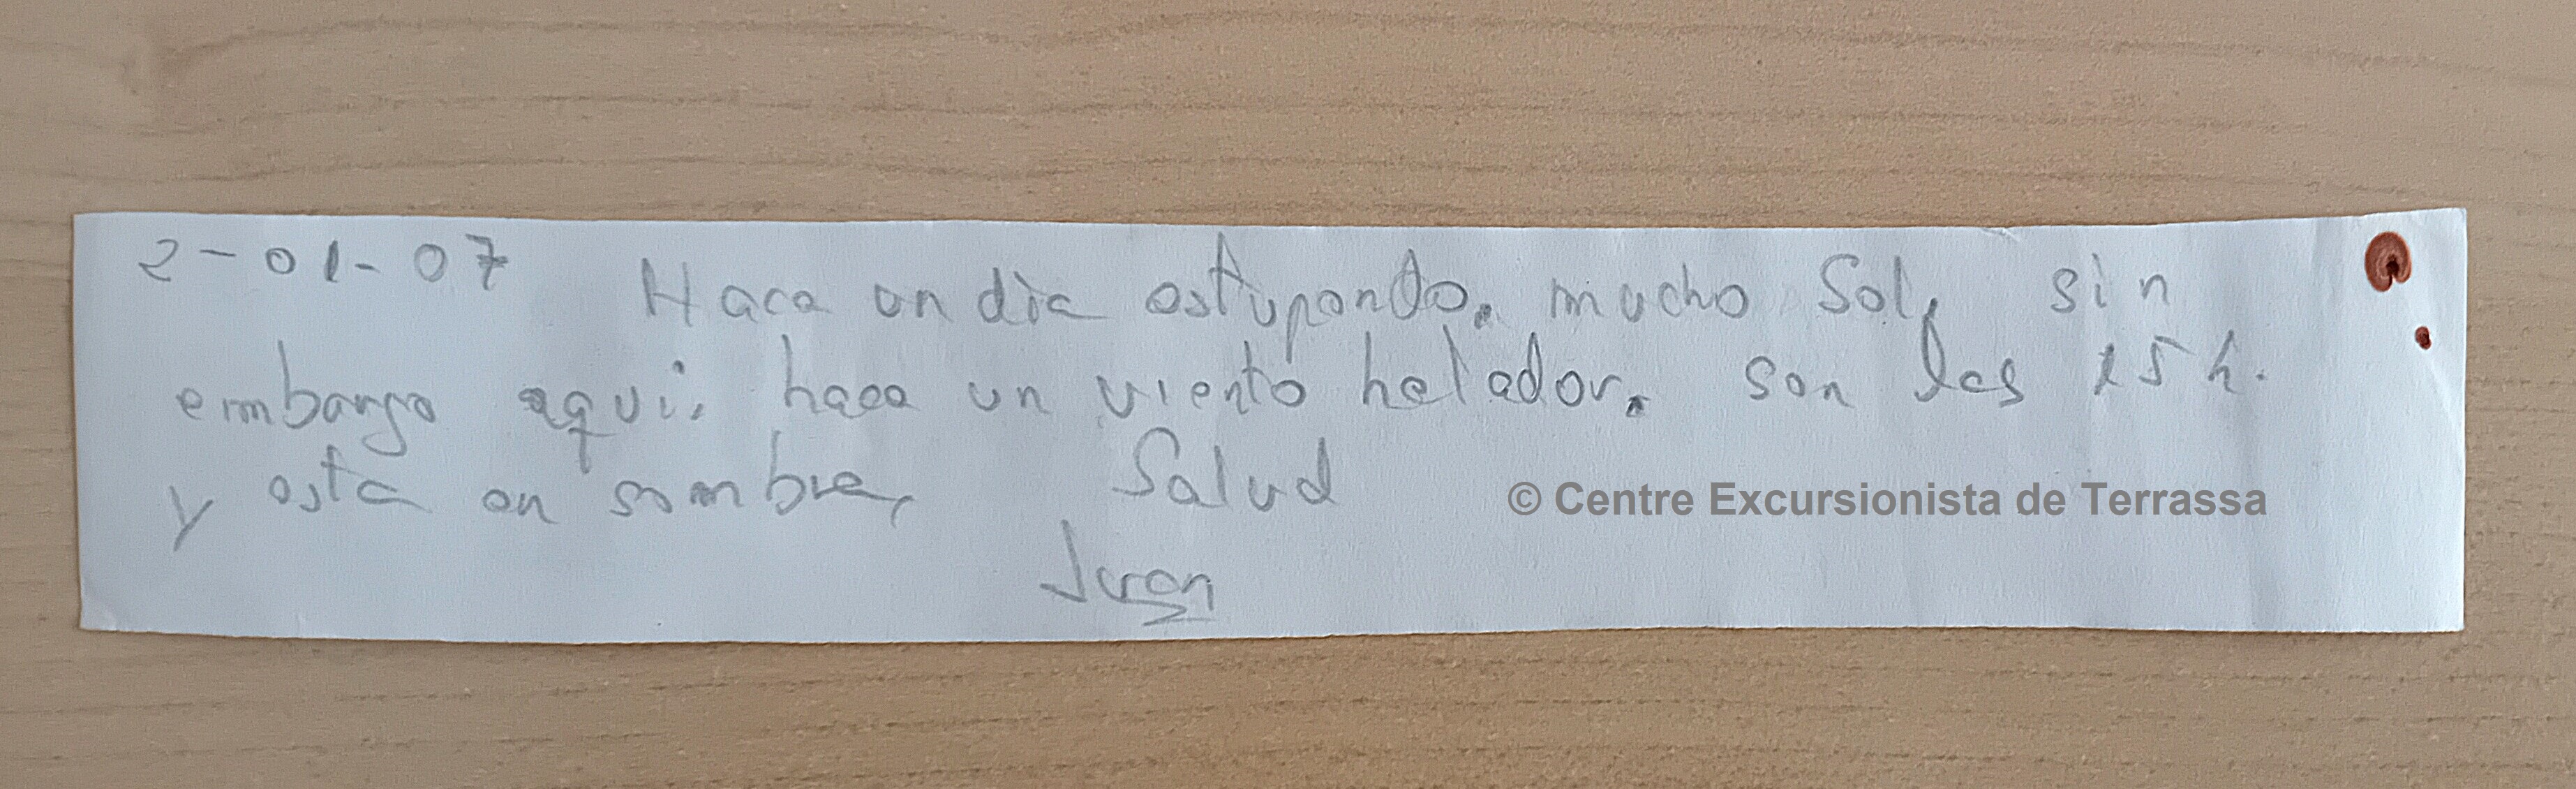 2-01-07 Hace un día estupendo. mucho Sol, sin
embargo aqui. hace un viento helador. son las 15 h.
y esta en sombra, Salud
Juan
© Centre Excursionista de Terrassa